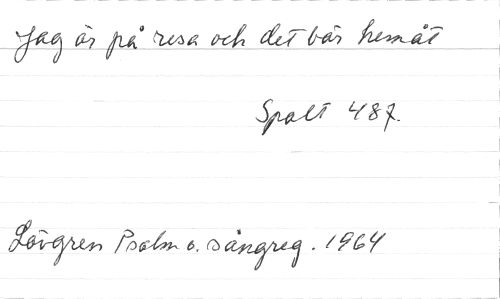 Jag är på resa och det bär hemåt
Spalt 487.
Lövgren Psalm o. sångreg. 1964